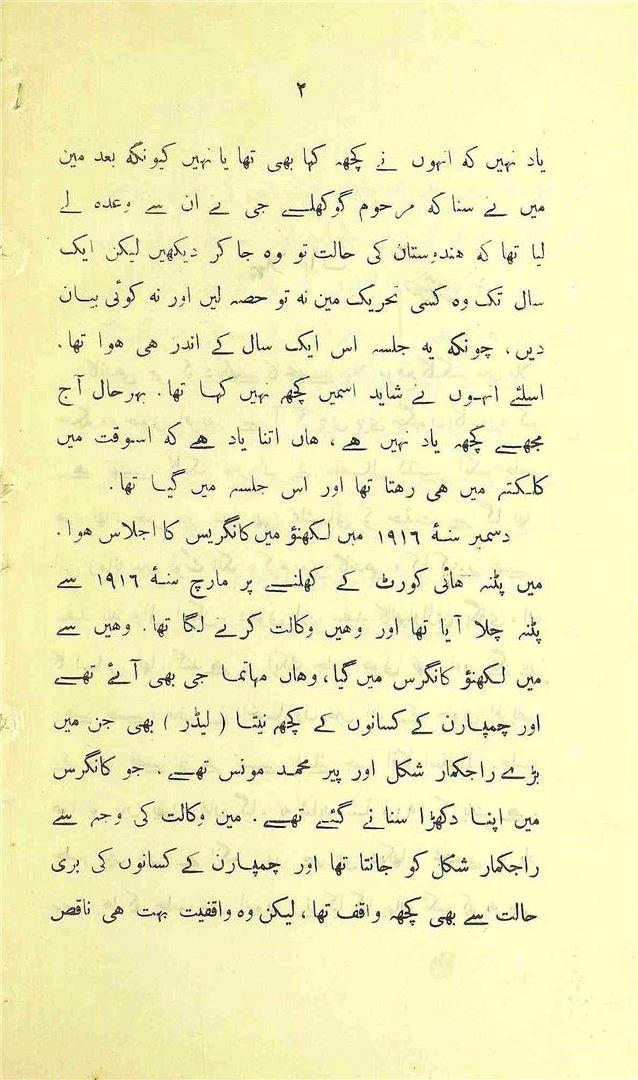 ۲
یاد نہیں که انہوں نے کچھہ کہا بھی تھا یا نہیں کیونکھ بعد مین
میں نے سنا که مرحوم گوکھلے جی نے ان سے وعدہ لے
لیا تھا که ھندوستان کی حالت تو وہ جا کر دیکھیں لیکن ایک
سال تک وہ کسی تحریک مین نه تو حصه لیں اور نه کوئی بیان
دیں، چونکھ یه جلسه اس ایک سال کے اندر ھی ھوا تھا.
اسلئے انہوں نے شاید اسمیں کچھہ نہیں کہا تھا. بہرحال آج
مجھے کچھہ یاد نہیں ھے، ھاں اتنا یاد ھے که اسوقت میں
کلکته میں ھی رھتا تھا اور اس جلسه میں گیا تھا.
دسمبر سنۀ ۱۹۱۶ میں لکھنؤ میں کانگریس کا اجلاس ھوا.
میں پٹنه ھائی کورٹ کے کھلنے پر مارچ سنۀ ۱۹۱۶ سے
پٹنه چلا آیا تھا اور وھیں وکالت کرنے لگا تھا. وھیں سے
میں لکھنؤ کانگرس میں گیا، وھاں مہاتما جی بھی آئے تھے
اور چمپارن کے کسانوں کے کچھہ نیتا ( لیڈر ) بھی جن میں
بڑے راجکمار شکل اور پیر محمد مونس تھے. جو کانگرس
میں اپنا دکھڑا سنانے گئے تھے. مین وکالت کی وجہ سے
راجکمار شکل کو جانتا تھا اور چمپارن کے کسانوں کی بری
حالت سے بھی کچھہ واقف تھا، لیکن وہ واقفیت بہت ھی ناقص